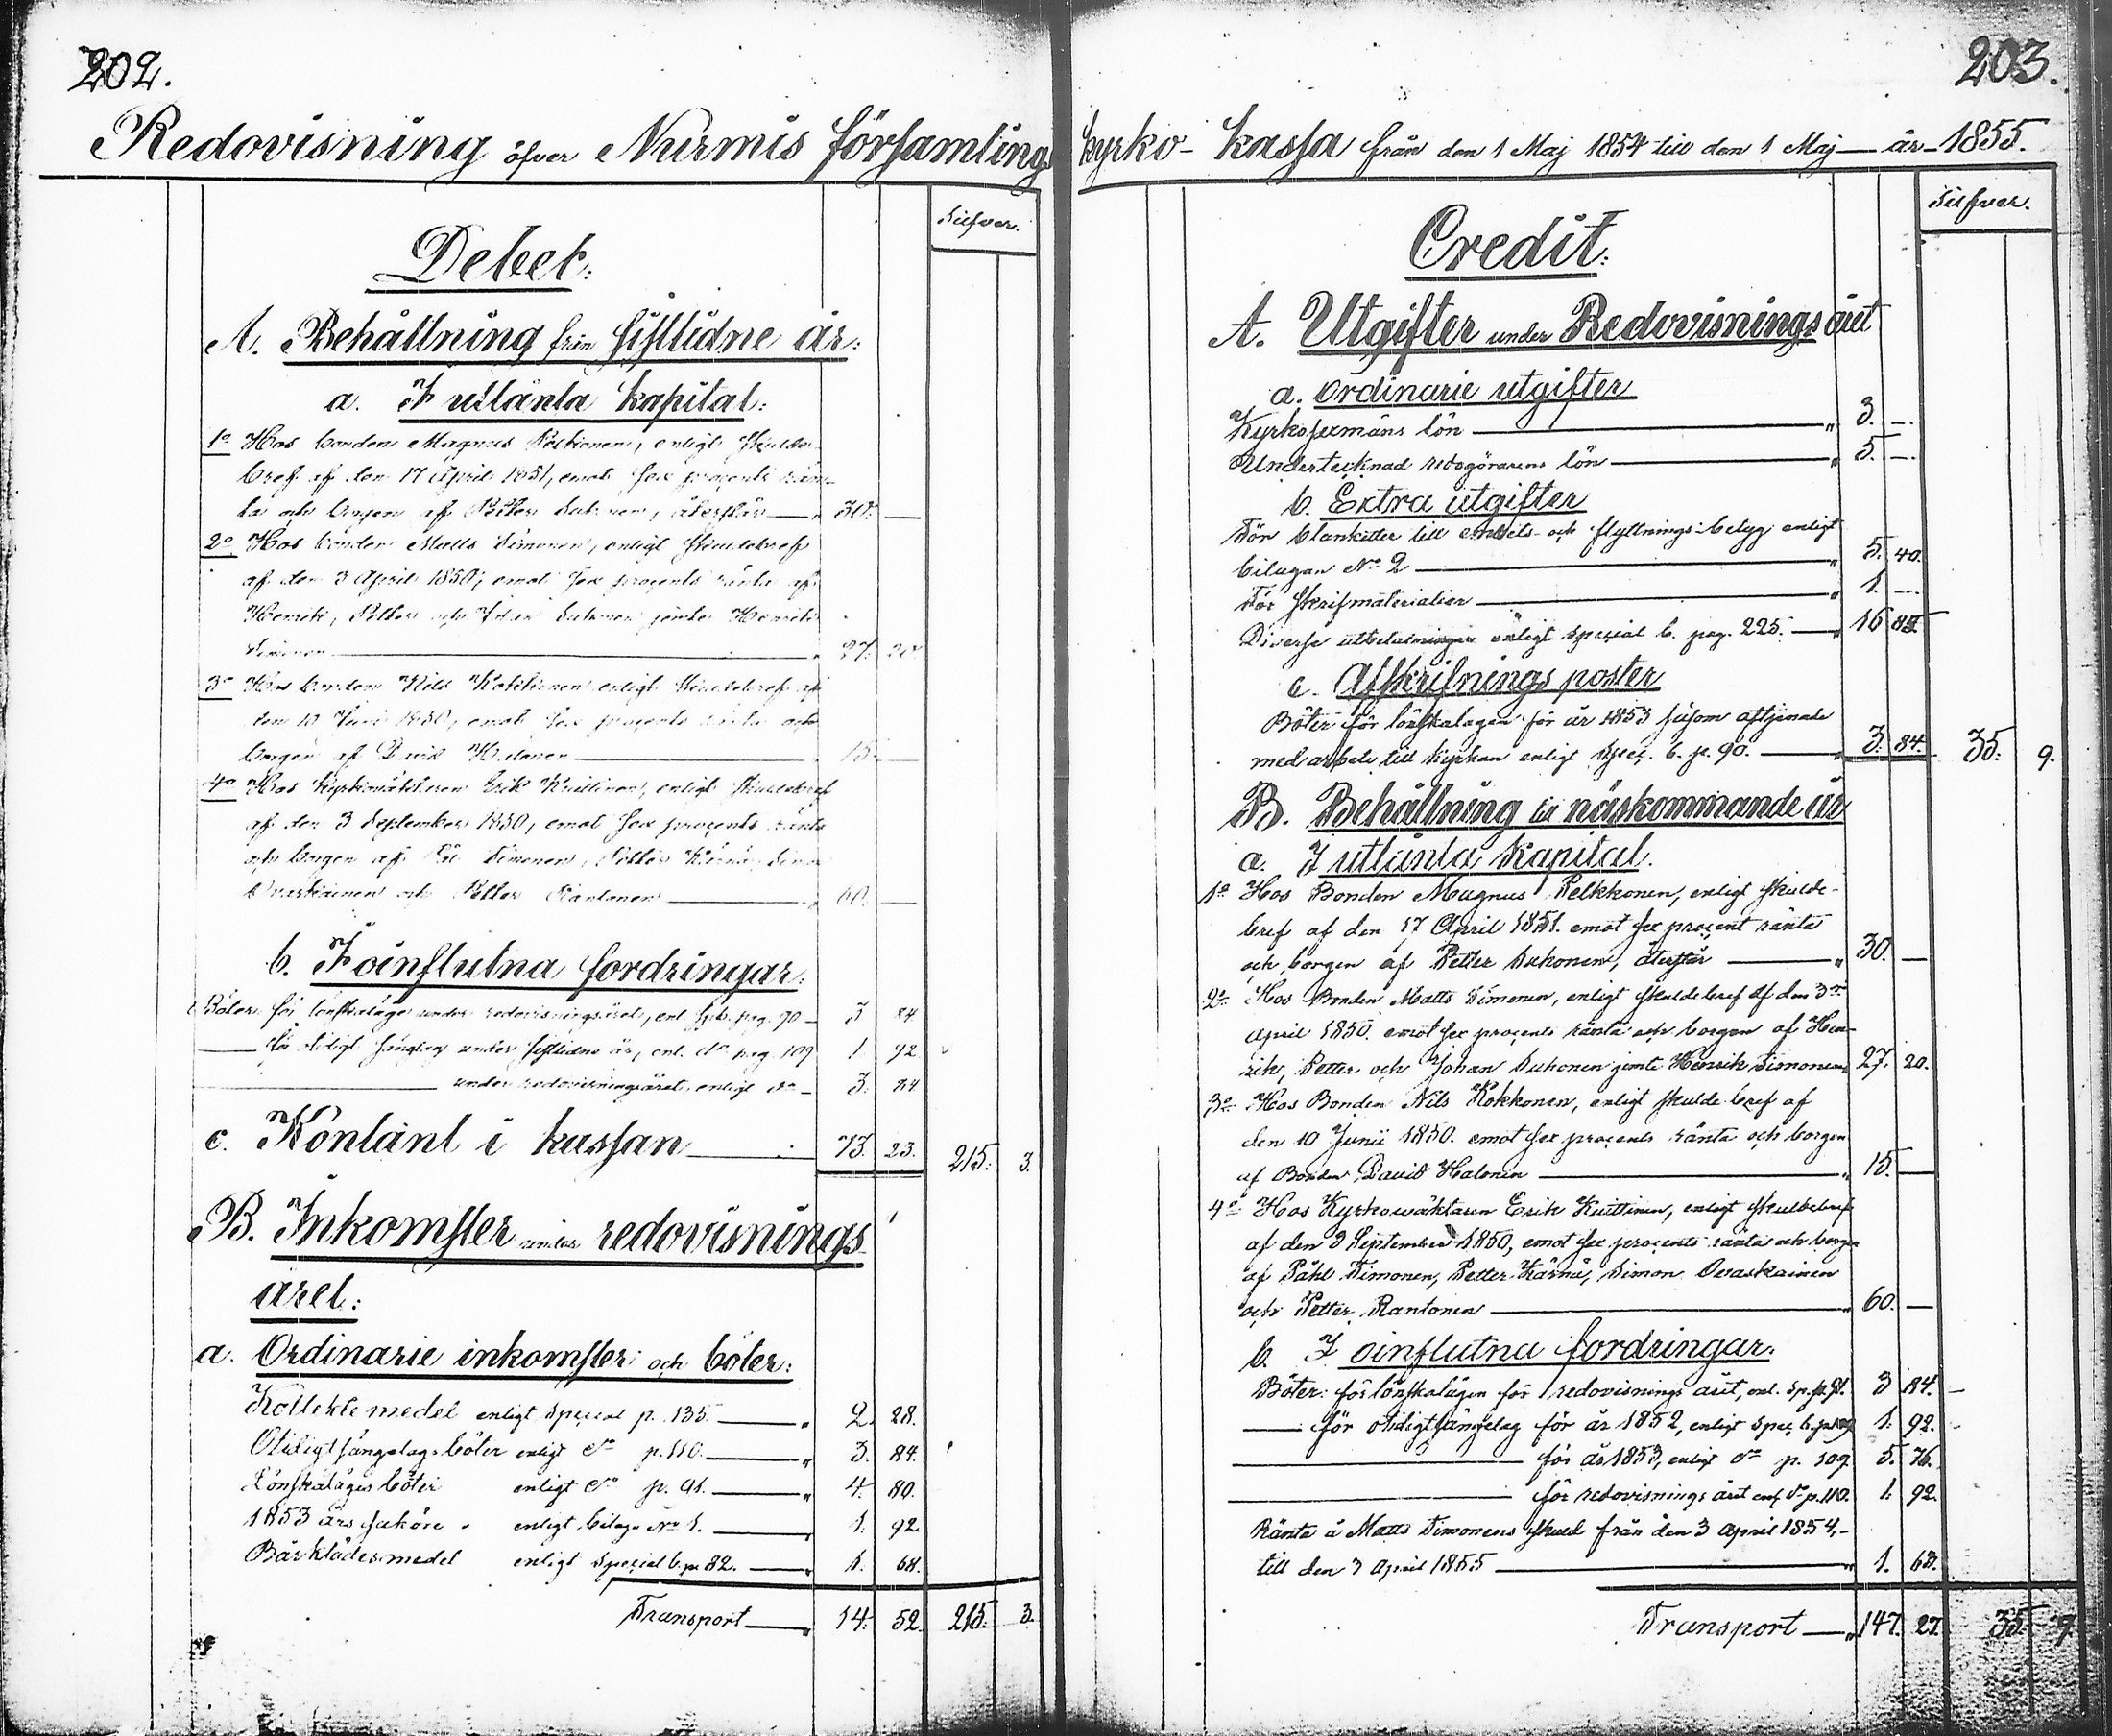 202.
Redovisning öfver Nurmis församlings
Silfver.
Debet:
A. Behållning från sistlidne år:
a. I utlånta kapital:
1o Hos bonden Magnus Pelkonen, enligt skulde-
bref af den 17 April 1851, emot sex procents rän-
ta och borgen af Petter Suhonen, återstår „ 30. —
2o Hos bonden Matts Timonen, enligt skuldebref
af den 3 April 1850, emot sex procents ränta af
Henrik, Petter och Johan Suhonen jemte Henrik
Timonen „ 27. 20.
3o Hos bonden Nils Kokkonen enligt skuldebref af
den 10 Juni 1850, emot sex procents ränta och
borgen af David Halonen „ 15. —
4o Hos Kyrkoväktaren Erik Kuittinen, enligt skuldebref
af den 3 September 1850, emot sex procents ränta
och borgen af Timonen, Petter Kärnä, Simon
Ovaskainen och Petter Rantonen „ 60. —
b. I oinflutna fordringar:
Böter för lönskaläge under redovisningsåret, enl. pag. 90 3 84.
— för otidigt sänglag under sistlidne år, enl. do pag. 109 1. 92
— under redovisningsåret, enligt do 3. 84
c. Kontant i kassan 73. 23. 215. 3.
B. Inkomster under redovisnings-
året:
a. Ordinarie inkomster och böter:
Kollekte medel enligt special p. 135. „ 2. 28.
Otidigt sängelags böter enligt do p. 110. „ 3. 84.
Lönskaläges böter enligt do p. 91. „ 4. 80.
1853 års saköre enligt bilaga No 1. „ 1. 92.
Bårklädesmedel enligt special b. p. 82. „ 1. 68.
Transport „ 14. 52. 215. 3.
203.
kyrko- kassa från den 1 Maj 1854 till den 1 Maj — år — 1855.
Silfver.
Credit:
A. Utgifter under Redovisnings året
a. Ordinarie utgifter
Kyrkosexmäns lön „ 3. —.
Undertecknad redogörarens lön „ 5. —.
b. Extra utgifter
För blanketter till och flyttnings-betyg enligt
bilagan No 2 „ 5. 40.
För skrifmaterialier „ 1. —
Diverse utbetalningar enligt special b. pag. 225. „ 16 85
c. Afskrifnings poster
Böter för lönskalägen för år 1853 såsom aftjenade
med arbete till kyrkan enligt spec. b. p. 90. „ 3. 84. 35. 9.
B. Behållning till näskommande år
a. I utlånta Kapital.
1o Hos Bonden Magnus Pelkkonen, enligt skulde-
bref af den 17 April 1851. emot sex procent ränta
och borgen af Petter Suhonen, återstår „ 30. —
2o Hos Bonden Matts Timonen, enligt skuldebref af den 3
April 1850. emot sex procents ränta och borgen af Hen-
rik, Petter och Johan Suhonen jemte Henrik Timonen 27. 20.
3o Hos Bonden Nils Kokkonen, enligt skulde bref af
den 10 Junii 1850. emot sex procents ränta och borgen
af Bonden David Halonen „ 15. —
4o Hos Kyrkowäktaren Erik Kuittinen, enligt skuldebref
af den 3 September 1850, emot sex procents ränta och borgen
af Påhl Timonen, Petter Kärnä, Simon Ovaskainen
och Petter Rantonen „ 60. —
b. I oinflutna fordringar.
Böter: för lönskalägen för redovisnings året, enl. sp. p. 91. 3 84.
— för otidigt sängelag för år 1852, enligt spec. b. p. 109 1. 92.
— för år 1853, enligt do p. 109. 5. 76.
— för redovisnings året enl. do p. 110. 1. 92.
Ränta å Matts Timonens skuld från den 3 April 1854,
till den 3 April 1855 „ 1. 63.
Transport „ 147. 27. 35. 9.